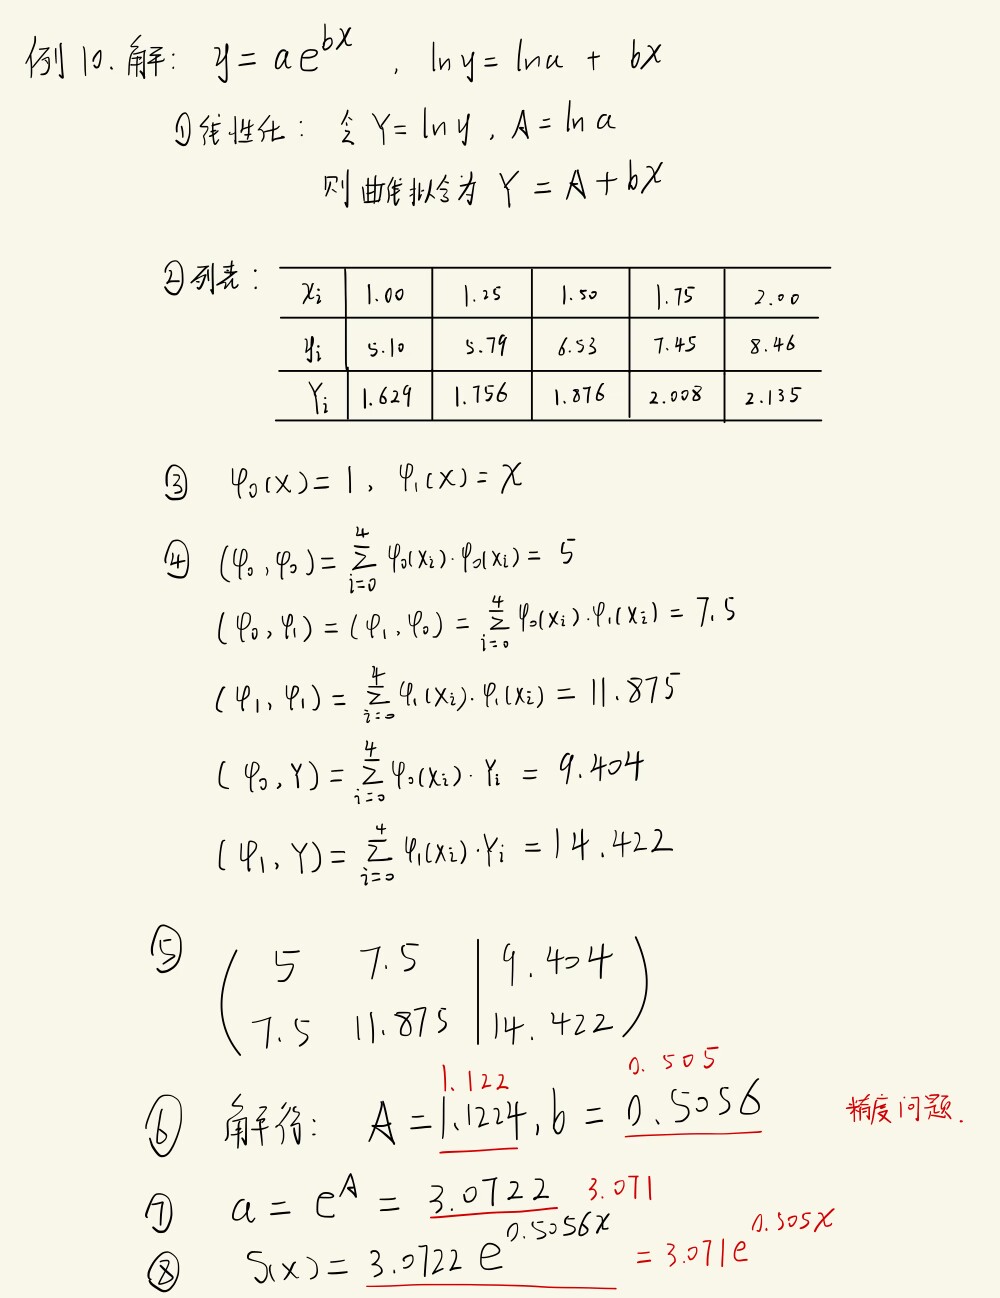 例10.解: y = ae^{bx} , ln y = ln a + bx
①线性化: 令 Y = ln y , A = ln a
则曲线拟合为 Y = A + bx
②列表:
x_i 1.00 1.25 1.50 1.75 2.00
y_i 5.10 5.79 6.53 7.45 8.46
Y_i 1.629 1.756 1.876 2.008 2.135
③ φ_0(x) = 1 , φ_1(x) = x
④ (φ_0, φ_0) = \sum_{i=0}^{4} φ_0(x_i)·φ_0(x_i) = 5
(φ_0, φ_1) = (φ_1, φ_0) = \sum_{i=0}^{4} φ_0(x_i)·φ_1(x_i) = 7.5
(φ_1, φ_1) = \sum_{i=0}^{4} φ_1(x_i)·φ_1(x_i) = 11.875
(φ_0, Y) = \sum_{i=0}^{4} φ_0(x_i)·Y_i = 9.404
(φ_1, Y) = \sum_{i=0}^{4} φ_1(x_i)·Y_i = 14.422
⑤ ( 5 7.5 | 9.404
7.5 11.875 | 14.422 )
1.122 0.505
⑥ 解得: A = 1.1224, b = 0.5056 精度问题.
⑦ a = e^A = 3.0722 3.071
⑧ S(x) = 3.0722 e^{0.5056x} = 3.071e^{0.505x}